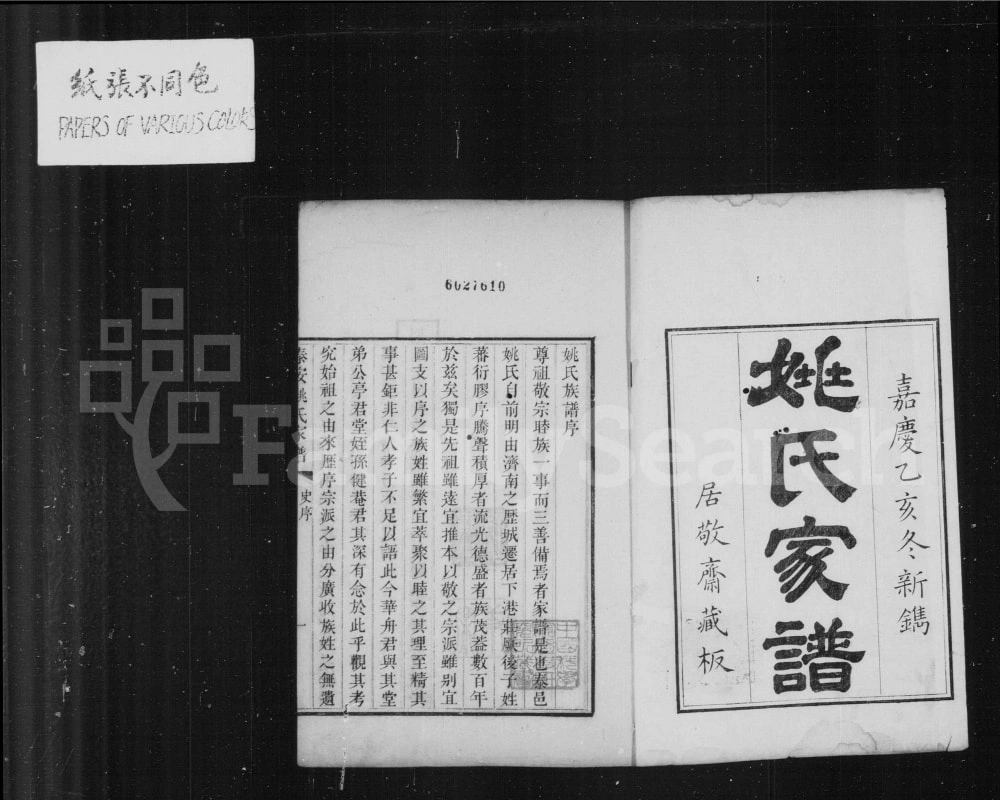 紙張不同色
PAPERS OF VARIOUS COLORS
嘉慶乙亥冬新鐫
姚氏家譜
居敬齋藏板
6027610
姚氏族譜序
尊祖敬宗睦族一事而三善備焉者家譜是也泰邑
姚氏自前明由濟南之歷城遷居下港莊厥後子姓
蕃衍膠序騰聲積厚者流光德盛者族茂蓋數百年
於茲矣獨是先祖雖遠宜推本以敬之宗派雖别宜
圖支以序之族姓雖繁宜萃聚以睦之其理至精其
事甚鉅非仁人孝子不足以語此今華舟君與其堂
弟公亭君堂姪孫健菴君其深有念於此乎觀其考
究始祖之由來歷序宗派之由分廣收族姓之無遺
泰安姚氏家譜 史序 一
FamilySearch